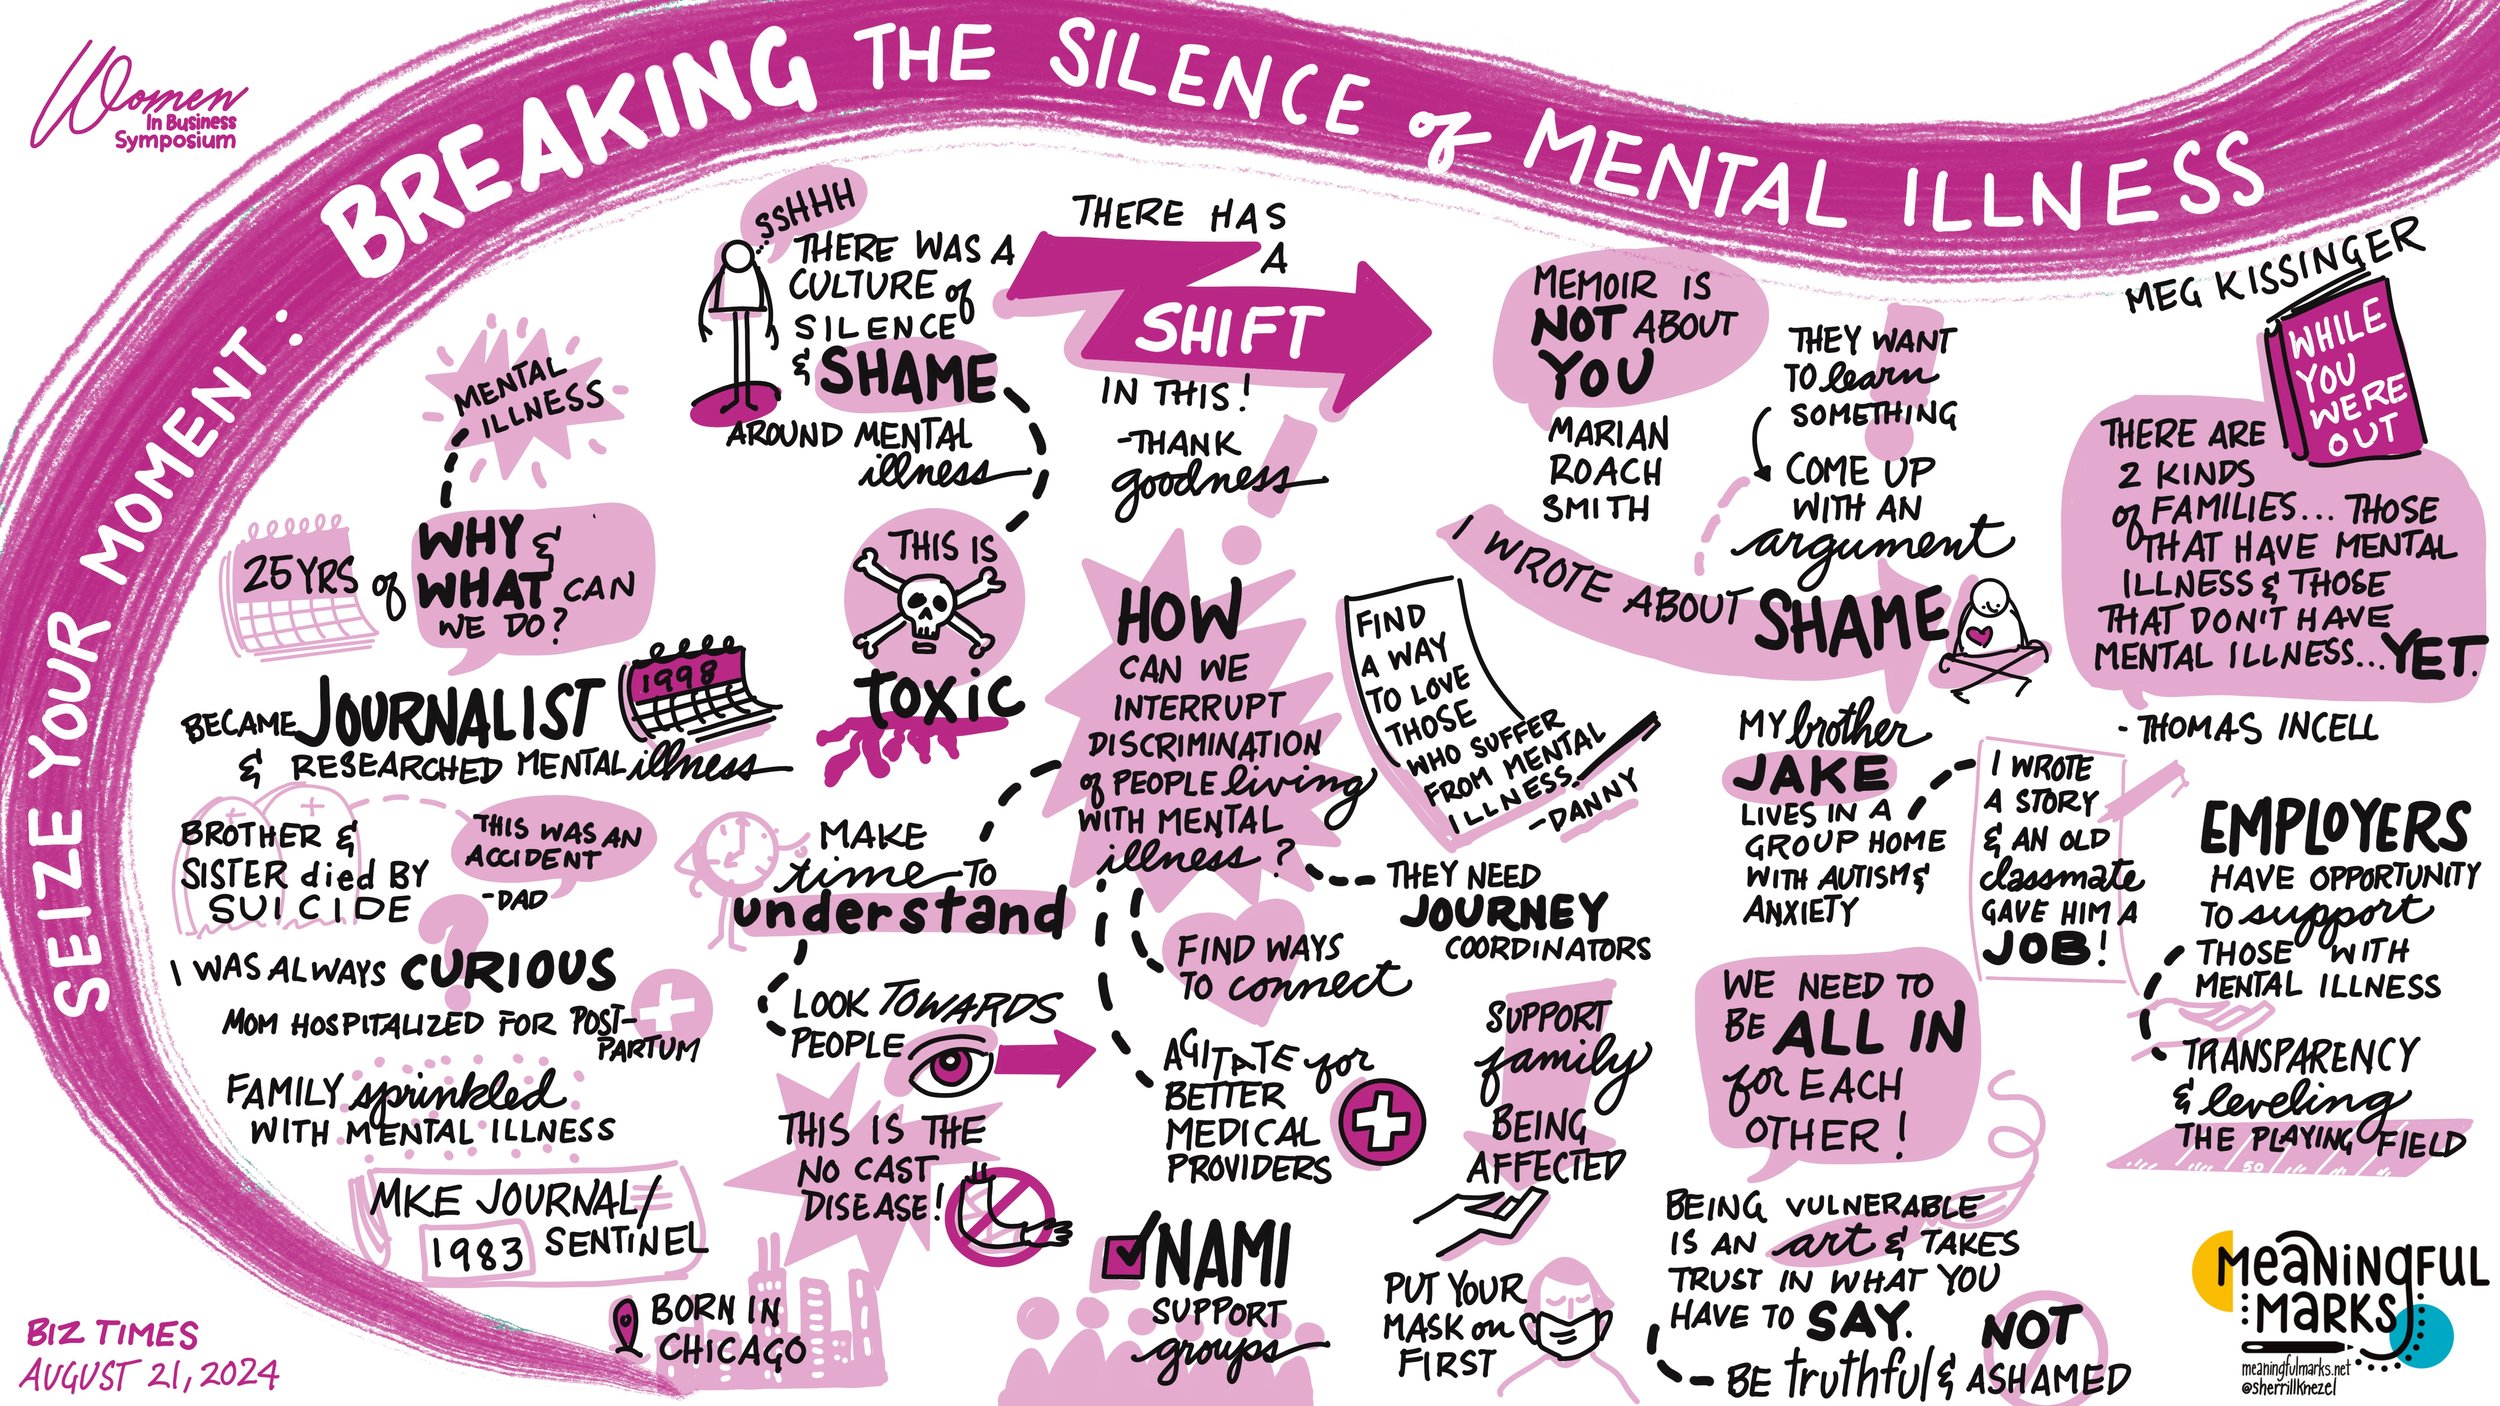 Women
In Business
Symposium
SEIZE YOUR MOMENT: BREAKING THE SILENCE of MENTAL ILLNESS
BIZ TIMES
AUGUST 21, 2024
BORN IN
CHICAGO
MKE JOURNAL/
SENTINEL
1983
FAMILY sprinkled
WITH MENTAL ILLNESS
MOM HOSPITALIZED FOR POST-
PARTUM
I WAS ALWAYS CURIOUS
?
BROTHER &
SISTER died BY
SUICIDE
THIS WAS AN
ACCIDENT
-DAD
BECAME JOURNALIST
& RESEARCHED MENTAL illness
1998
25 YRS of
WHY &
WHAT CAN
WE DO?
MENTAL
ILLNESS
SSHHH
THERE WAS A
CULTURE of
SILENCE
& SHAME
AROUND MENTAL
illness
THIS IS
TOXIC
THERE HAS
A
SHIFT
IN THIS!
-THANK
goodness
!
HOW
CAN WE
INTERRUPT
DISCRIMINATION
of PEOPLE living
WITH MENTAL
illness?
MAKE
time TO
understand
LOOK TOWARDS
PEOPLE
THIS IS THE
NO CAST
DISEASE!
FIND WAYS
TO connect
AGITATE for
BETTER
MEDICAL
PROVIDERS
NAMI
SUPPORT
groups
THEY NEED
JOURNEY
COORDINATORS
SUPPORT
family
BEING
AFFECTED
PUT YOUR
MASK on
FIRST
FIND
A WAY
TO LOVE
THOSE
WHO SUFFER
FROM MENTAL
ILLNESS.
-DANNY
MEMOIR IS
NOT ABOUT
YOU
MARIAN
ROACH
SMITH
THEY WANT
TO learn
SOMETHING
COME UP
WITH AN
argument
I WROTE ABOUT SHAME
MY brother
JAKE
LIVES IN A
GROUP HOME
WITH AUTISM &
ANXIETY
I WROTE
A STORY
& AN OLD
classmate
GAVE HIM A
JOB!
WE NEED TO
BE ALL IN
for EACH
OTHER!
BEING VULNERABLE
IS AN art & TAKES
TRUST IN WHAT YOU
HAVE TO SAY.
BE truthful & NOT
ASHAMED
MEG KISSINGER
WHILE
YOU
WERE
OUT
THERE ARE
2 KINDS
of FAMILIES... THOSE
THAT HAVE MENTAL
ILLNESS & THOSE
THAT DON'T HAVE
MENTAL ILLNESS... YET.
-THOMAS INCELL
EMPLOYERS
HAVE OPPORTUNITY
TO support
THOSE WITH
MENTAL ILLNESS
TRANSPARENCY
& leveling
THE PLAYING FIELD
50
MEANINGFUL
MARKS
meaningfulmarks.net
@sherrillknezel